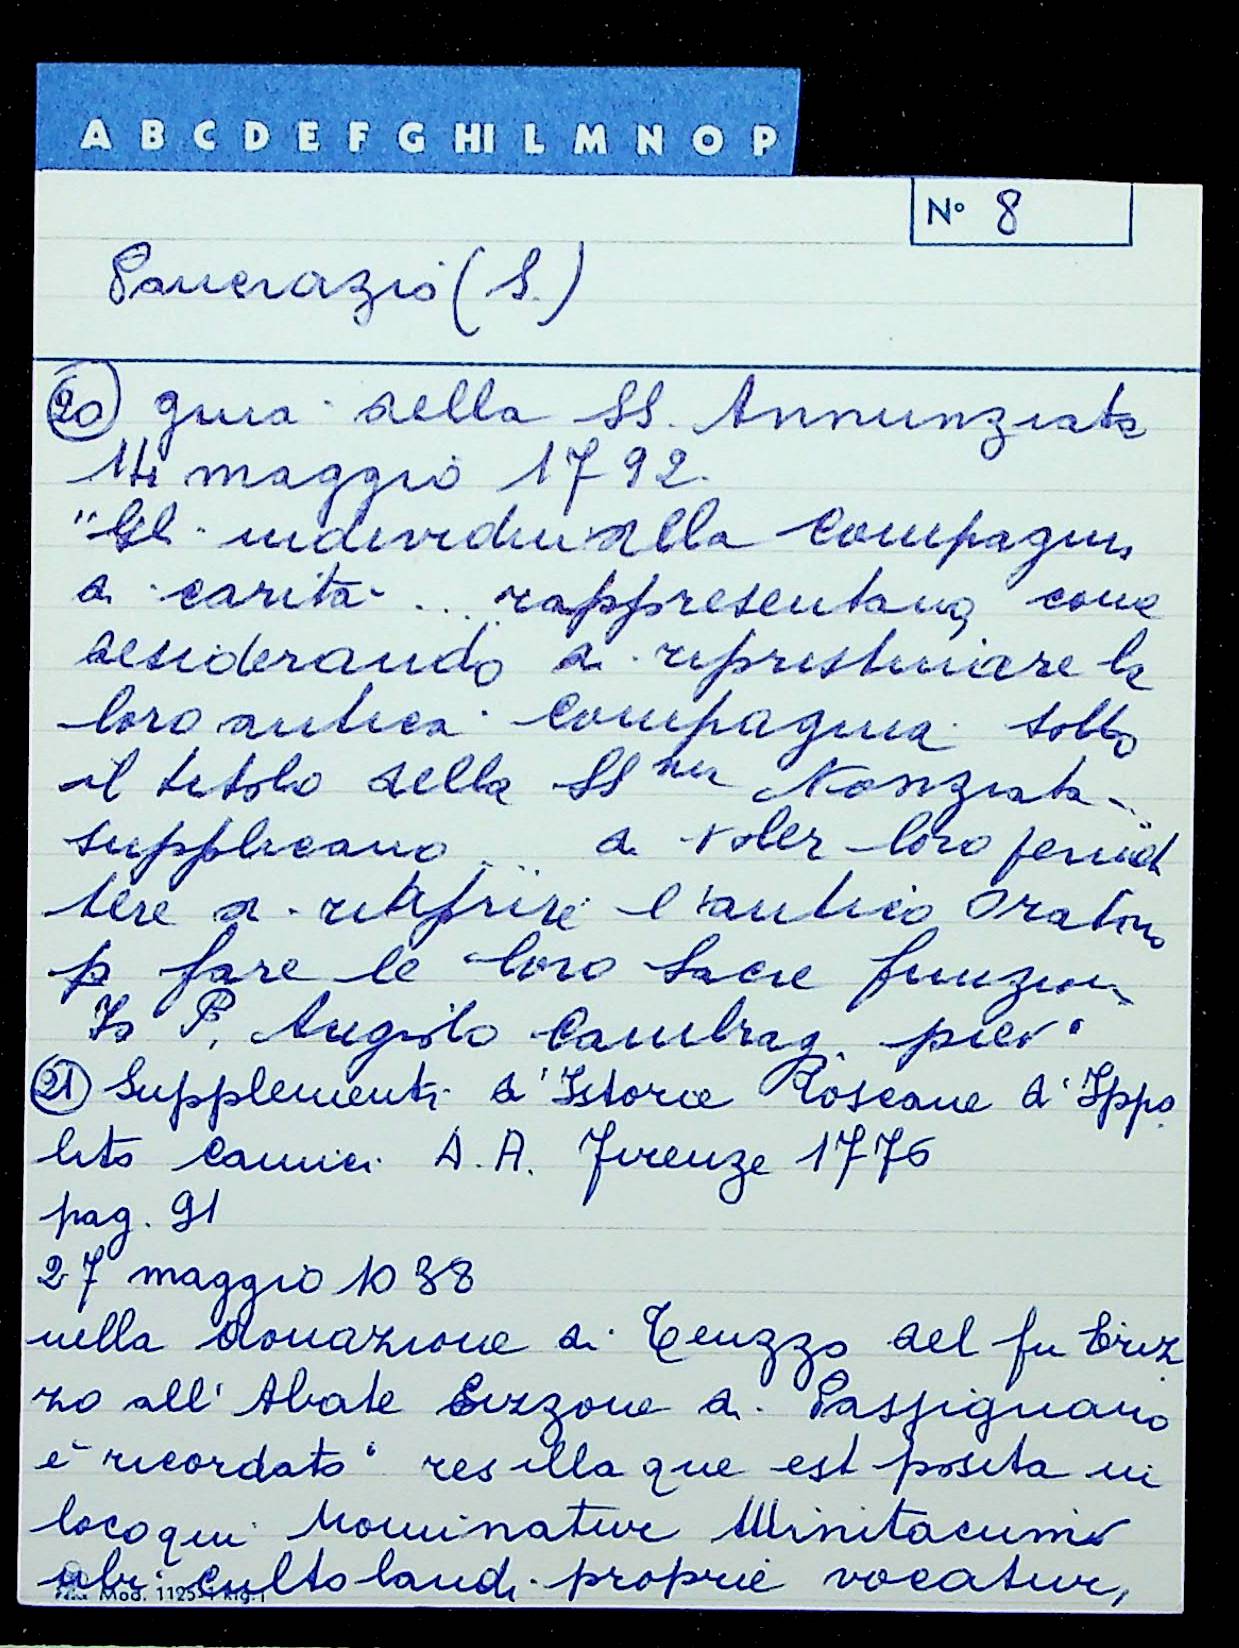 A B C D E F G HI L M N O P
N° 8
Pancrazio (S.)
20 gnia della SS. Annunziata
14 maggio 1792.
"Gl. individui della Compagnia
di carità ... rappresentano, come
desiderando di ripristinare la
loro antica Compagnia sotto
il titolo della SS ma Nonziata
supplicano ... a voler loro permet
tere di riaprire l'antico Oratorio
p fare le loro sacre funzioni
Io P. Angiolo Cambrag. piev°
21 Supplementi d'Istorie Toscane d'Ippo
lito Camici A. A. Firenze 1776
pag. 91
27 maggio 1038
nella donazione di Teuzzo del fu Eriz
zo all'Abate Erizzone di Passignano
è ricordato "res illa que est posita in
loco qui Nominatur Minitacumi
ubi cultolandi proprie vocatur,
Mod. 11251 Rig. 1